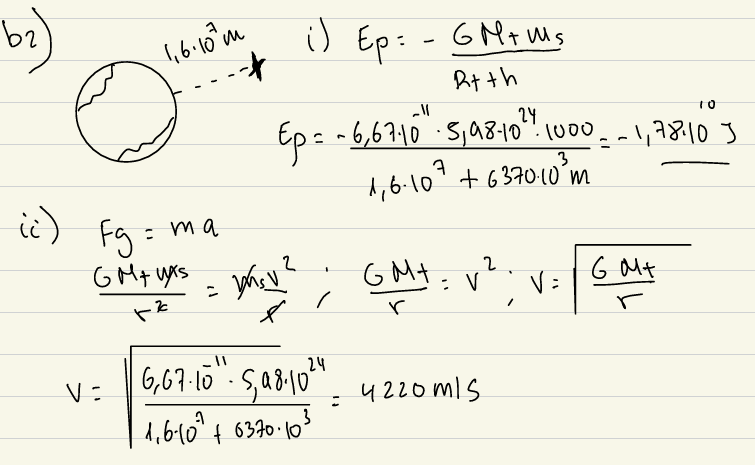 b2)
1,6·10⁷ m
i) Ep = - G Mt ms / Rt + h
Ep = - 6,67·10⁻¹¹ · 5,98·10²⁴ · 1000 / 1,6·10⁷ + 6370·10³ m = -1,78·10¹⁰ J
ii) Fg = m a
G Mt ms / r² = ms v² / r ; G Mt / r = v² ; v = √(G Mt / r)
v = √(6,67·10⁻¹¹ · 5,98·10²⁴ / 1,6·10⁷ + 6370·10³) = 4220 m/s